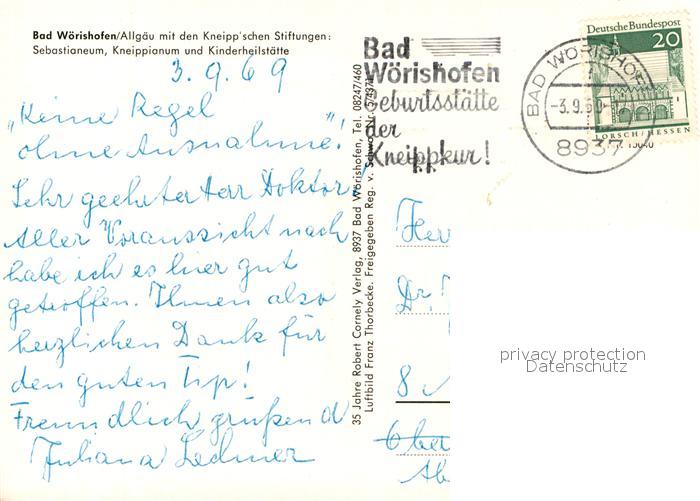 Bad Wörishofen/Allgäu mit den Kneipp'schen Stiftungen:
Sebastianeum, Kneippianum und Kinderheilstätte
3.9.69
„Keine Regel
ohne Ausnahme!"
Sehr geehrter Herr Doktor,
Aller Voraussicht nach
habe ich es hier gut
getroffen. Ihnen also
herzlichen Dank für
den guten Tip!
Freundlich grüßend
Juliana Lechner
35 Jahre Robert Cornely Verlag, 8937 Bad Wörishofen, Tel. 08247/460
Luftbild Franz Thorbecke. Freigegeben Reg. v. Schwb. Nr.
Bad
Wörishofen
Geburtsstätte
der
Kneippkur!
BAD WÖRISHOFEN
-3.9.69
8937
Deutsche Bundespost
20
LORSCH/HESSEN
Her
Dr.
8
Ober
privacy protection
Datenschutz